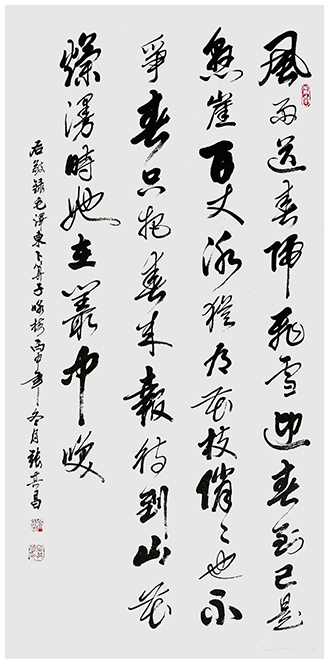 風雨送春歸飛雪迎春到已是
懸崖百丈冰猶有花枝俏〻也不
爭春只把春來報待到山花
爛漫時她在叢中笑
右敬錄毛澤東卜算子咏梅丙申年冬月張其昌